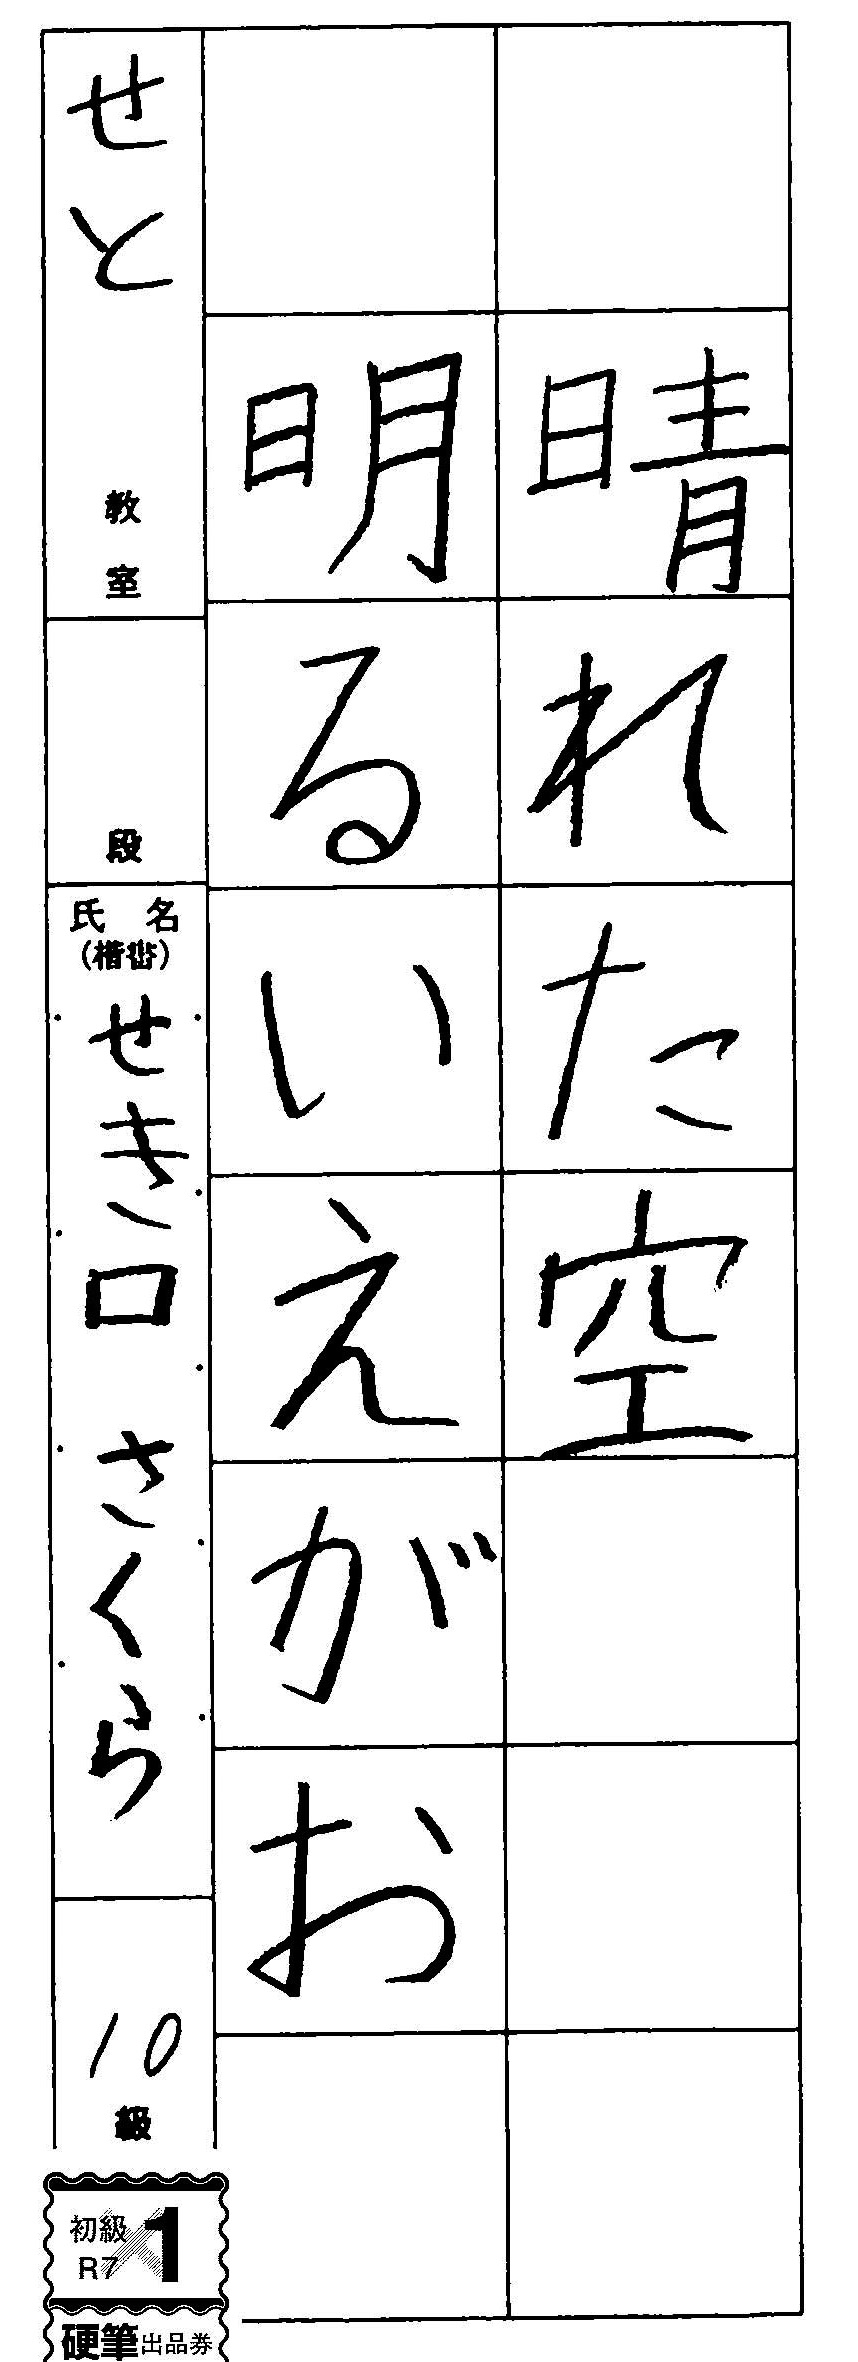 晴れた空
明るいえがお
せと教室
段
氏名
(楷書)
せき口 さくら
10級
初級
R7
1
硬筆出品券